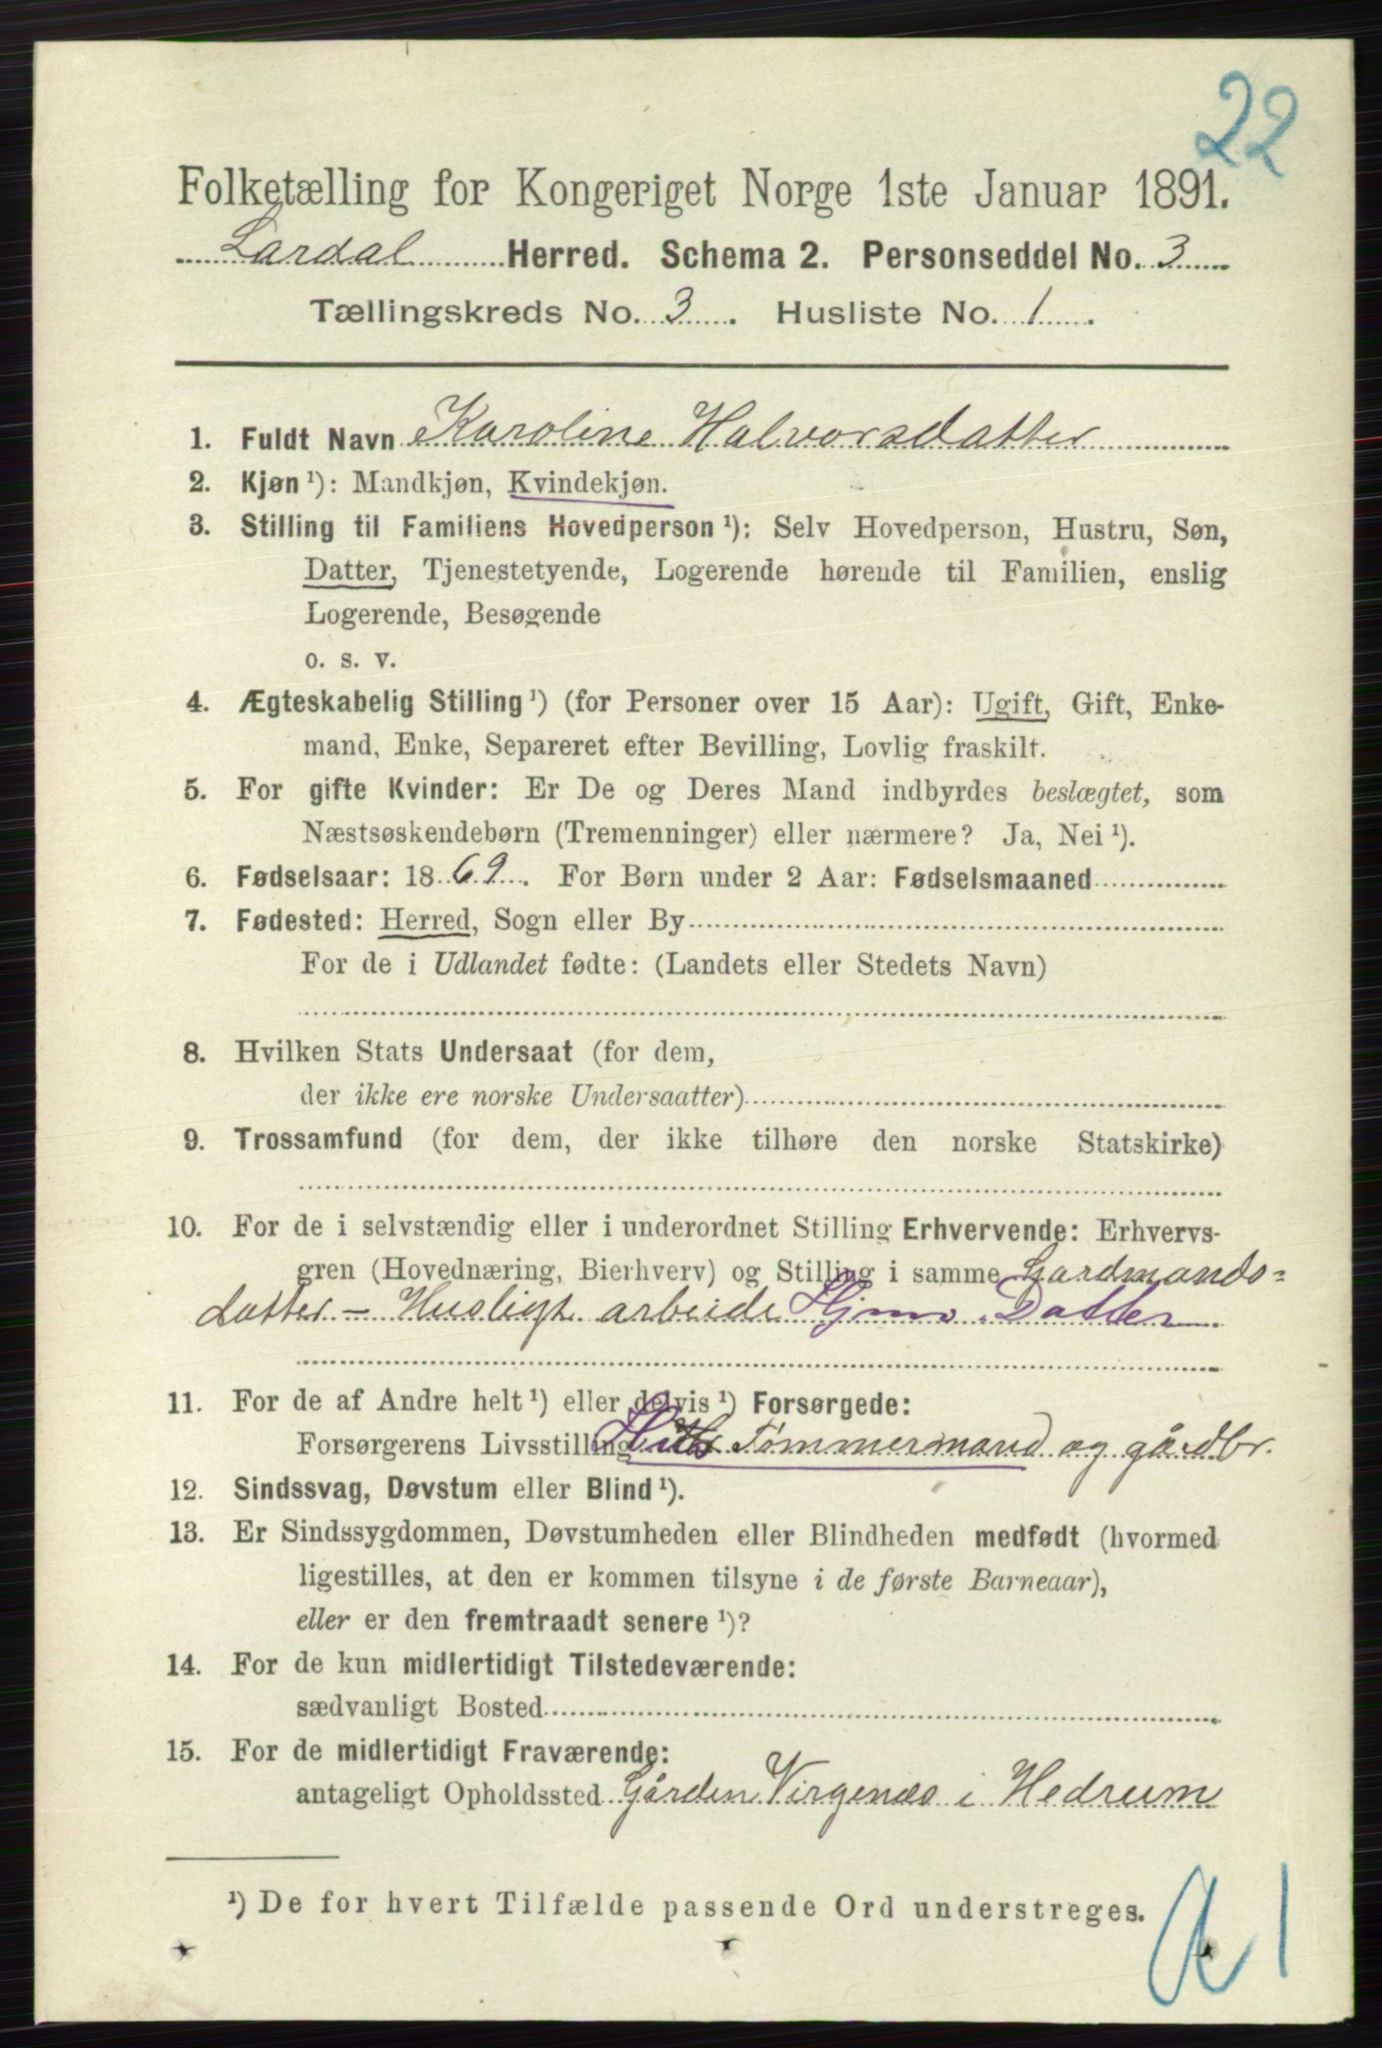 22
Folketælling for Kongeriget Norge 1ste Januar 1891.
Lardal Herred. Schema 2. Personseddel No. 3
Tællingskreds No. 3. Husliste No. 1.
1. Fuldt Navn Karoline Halvorsdatter
2. Kjøn¹): Mandkjøn, Kvindekjøn.
3. Stilling til Familiens Hovedperson¹): Selv Hovedperson, Hustru, Søn,
Datter, Tjenestetyende, Logerende hørende til Familien, enslig
Logerende, Besøgende
o. s. v.
4. Ægteskabelig Stilling¹) (for Personer over 15 Aar): Ugift, Gift, Enke-
mand, Enke, Separeret efter Bevilling, Lovlig fraskilt.
5. For gifte Kvinder: Er De og Deres Mand indbyrdes beslægtet, som
Næstsøskendebørn (Tremenninger) eller nærmere? Ja, Nei¹).
6. Fødselsaar: 1869. For Børn under 2 Aar: Fødselsmaaned
7. Fødested: Herred, Sogn eller By
For de i Udlandet fødte: (Landets eller Stedets Navn)
8. Hvilken Stats Undersaat (for dem,
der ikke ere norske Undersaatter)
9. Trossamfund (for dem, der ikke tilhøre den norske Statskirke)
10. For de i selvstændig eller i underordnet Stilling Erhvervende: Erhvervs-
gren (Hovednæring, Bierhverv) og Stilling i samme Gardmands-
datter - Husligt arbeide Hjmv. Datter
11. For de af Andre helt¹) eller delvis¹) Forsørgede:
Forsørgerens Livsstilling Tømmermand og gårdbr.
12. Sindssvag, Døvstum eller Blind¹).
13. Er Sindssygdommen, Døvstumheden eller Blindheden medfødt (hvormed
ligestilles, at den er kommen tilsyne i de første Barneaar),
eller er den fremtraadt senere¹)?
14. For de kun midlertidigt Tilstedeværende:
sædvanligt Bosted
15. For de midlertidigt Fraværende:
antageligt Opholdssted Gården Virgenes i Hedrum
¹) De for hvert Tilfælde passende Ord understreges.